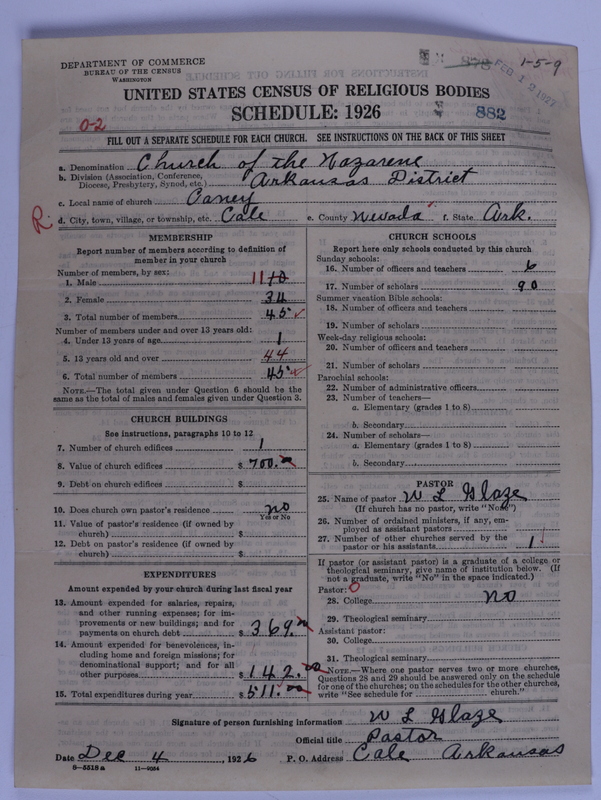 DEPARTMENT OF COMMERCE
BUREAU OF THE CENSUS
WASHINGTON
878
FEB 12 1927
1-5-9
UNITED STATES CENSUS OF RELIGIOUS BODIES
SCHEDULE: 1926
882
0-2
FILL OUT A SEPARATE SCHEDULE FOR EACH CHURCH. SEE INSTRUCTIONS ON THE BACK OF THIS SHEET
a. Denomination Church of the Nazarene
b. Division (Association, Conference, Diocese, Presbytery, Synod, etc.) Arkansas District
c. Local name of church Caney
R. d. City, town, village, or township, etc. Cale e. County Nevada f. State Ark.
MEMBERSHIP
Report number of members according to definition of member in your church
Number of members, by sex:
1. Male 11 10
2. Female 34
3. Total number of members 45
Number of members under and over 13 years old:
4. Under 13 years of age 1
5. 13 years old and over 44
6. Total number of members 45
NOTE.—The total given under Question 6 should be the same as the total of males and females given under Question 3.
CHURCH BUILDINGS
See instructions, paragraphs 10 to 12
7. Number of church edifices 1
8. Value of church edifices $ 700.
9. Debt on church edifices $
10. Does church own pastor's residence no
Yes or No
11. Value of pastor's residence (if owned by church) $
12. Debt on pastor's residence (if owned by church) $
EXPENDITURES
Amount expended by your church during last fiscal year
13. Amount expended for salaries, repairs, and other running expenses; for improvements or new buildings; and for payments on church debt $ 369.
14. Amount expended for benevolences, including home and foreign missions; for denominational support; and for all other purposes $ 142.00
15. Total expenditures during year $ 511.00
CHURCH SCHOOLS
Report here only schools conducted by this church
Sunday schools:
16. Number of officers and teachers 6
17. Number of scholars 90
Summer vacation Bible schools:
18. Number of officers and teachers
19. Number of scholars
Week-day religious schools:
20. Number of officers and teachers
21. Number of scholars
Parochial schools:
22. Number of administrative officers
23. Number of teachers—
a. Elementary (grades 1 to 8)
b. Secondary
24. Number of scholars—
a. Elementary (grades 1 to 8)
b. Secondary
PASTOR
25. Name of pastor W L Glaze
(If church has no pastor, write "None")
26. Number of ordained ministers, if any, employed as assistant pastors
27. Number of other churches served by the pastor or his assistants 1
If pastor (or assistant pastor) is a graduate of a college or theological seminary, give name of institution below. (If not a graduate, write "No" in the space indicated.)
Pastor: 0
28. College no
29. Theological seminary
Assistant pastor:
30. College
31. Theological seminary
NOTE.—Where one pastor serves two or more churches, Questions 28 and 29 should be answered only on the schedule for one of the churches; on the schedules for the other churches, write "See schedule for church."
Signature of person furnishing information W L Glaze
Official title Pastor
Date Dec 4, 1926 P. O. Address Cale Arkansas
8—5518 a 11—9034